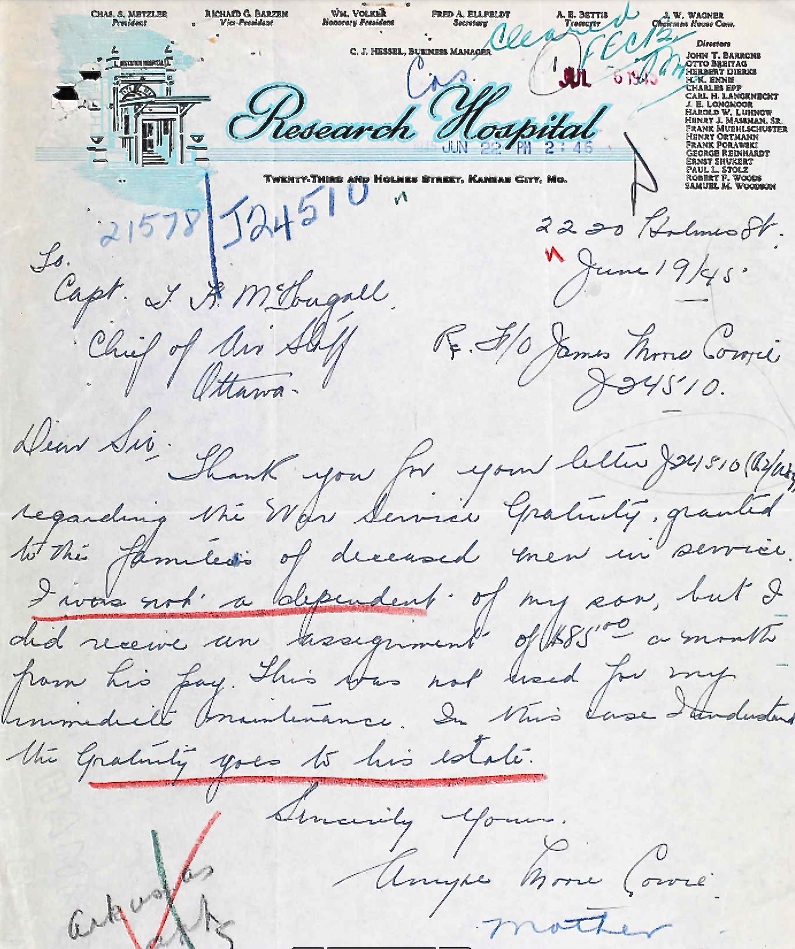 CHAS. S. METZLER
President
RICHARD G. BARZEN
Vice-President
WM. VOLKER
Honorary President
FRED A. ELLFELDT
Secretary
A. E. BETTIS
Treasurer
J. W. WAGNER
Chairman House Com.
C. J. HESSEL, BUSINESS MANAGER
Cleared
Cas.
JUL 6 1945
Directors
JOHN T. BARRONS
OTTO BREITAG
HERBERT DIERKS
H. K. ENNIS
CHARLES EPP
CARL H. LANGKNECHT
J. E. LONGMOOR
HAROLD W. LUHNOW
HENRY J. MASSMAN, SR.
FRANK MUEHLSCHUSTER
HENRY ORTMANN
FRANK PORAWSKI
GEORGE REINHARDT
ERNST SHUKERT
PAUL L. STOLZ
ROBERT F. WOODS
SAMUEL M. WOODSON
RESEARCH HOSPITAL
Research Hospital
JUN 22 PM 2:45
TWENTY-THIRD AND HOLMES STREET, KANSAS CITY, MO.
21578/J24510
2220 Holmes St.
June 19/45
To.
Capt. T. A. McDougall.
Chief of Air Staff
Ottawa.
Re. F/O James Moore Cowie
J24510.
Dear Sir.
Thank you for your letter J24510
regarding the War Service Gratuity, granted
to the families of deceased men in service.
I was not a dependent of my son, but I
did receive an assignment of $85.00 a month
from his pay. This was not used for my
immediate maintenance. In this case I understand
the Gratuity goes to his estate.
Sincerely Yours.
Moore Cowie.
Mother
Arkansas